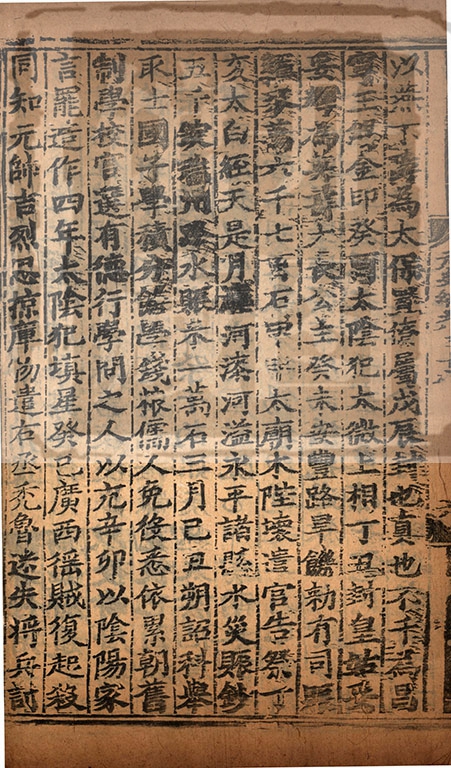 以燕不鄰為太保置僚屬戊辰封也真也不干為昌
寧王錫金印癸酉太陰犯太微上相丁丑封皇姑妥
妥輝為英壽大長公主癸未安豐路旱饑勑有司賑
糶麥萬六千七百石甲申太廟木陛壞遣官告祭丁
亥太白經天是月灤河漆河溢永平諸縣水災賑鈔
五千錠瑞州路水賑米一萬石三月己丑朔詔科舉
取士國子學積分膳學錢糧儒人免役悉依累朝舊
制學校官選有德行學問之人以充辛卯以陰陽家
言罷造作四年太陰犯填星癸巳廣西徭賊復起殺
同知元帥吉烈思掠庫物遣右丞禿魯迷失將兵討